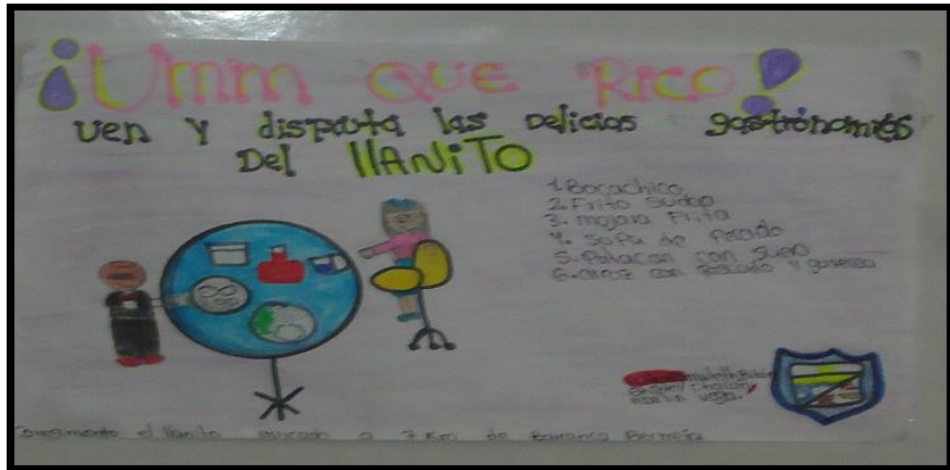 ¡Umm QUE RICO!
ven y disfruta las Delicias gastrónomies
Del llANiTO
1. Bocachico
2. Frito Sudao
3. mojara Frita
4. Sopa de Pescado
5. Patacan con Suero
6. arroz con Pescado y gaseosa
Chacon
vega.
Corregimiento el llanito a 7 Km de Barranca Bermeja